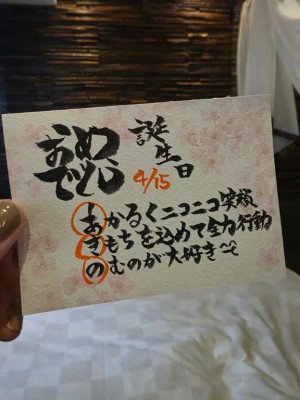 おめでとう
誕生日
4/15
あかるくニコニコ笑顔
きもちを込めて全力行動
のむのが大好き